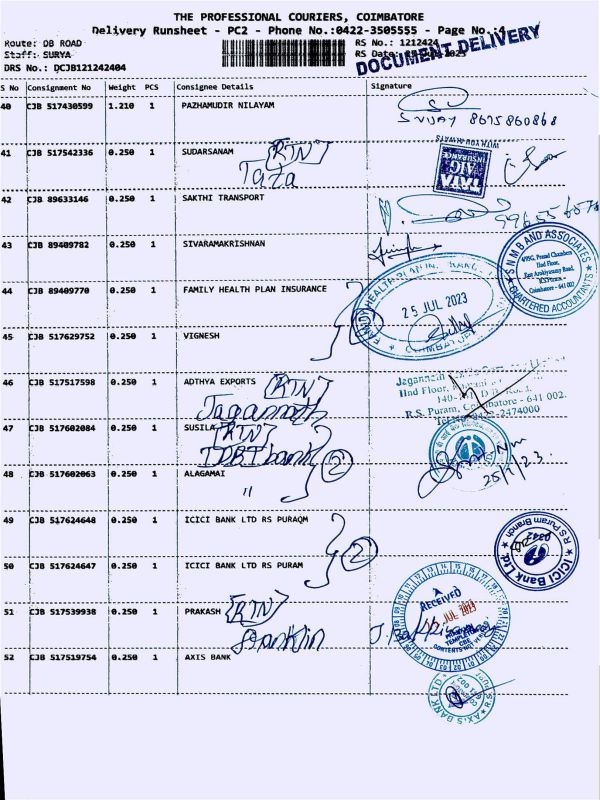 THE PROFESSIONAL COURIERS, COIMBATORE
Delivery Runsheet - PC2 - Phone No.:0422-3505555 - Page No.:4
Route: DB ROAD RS No.: 1212424
Staff: SURYA RS Date: 2023
DRS No.: DCJB121242404
DOCUMENT DELIVERY
S No Consignment No Weight PCS Consignee Details Signature
40 CJB 517430599 1.210 1 PAZHAMUDIR NILAYAM
SVIJAY 8675860868
41 CJB 517542336 0.250 1 SUDARSANAM [RTN]
Tata
WITH YOU ALWAYS
TATA AIG INSURANCE
42 CJB 89633146 0.250 1 SAKTHI TRANSPORT
43 CJB 89409782 0.250 1 SIVARAMAKRISHNAN
SNMB AND ASSOCIATES
CHARTERED ACCOUNTANTS
IInd Floor,
East Arokiyasamy Road,
R.S.Puram,
Coimbatore - 641 002
44 CJB 89409770 0.250 1 FAMILY HEALTH PLAN INSURANCE
FAMILY HEALTH PLAN IN
25 JUL 2023
2
45 CJB 517629752 0.250 1 VIGNESH
46 CJB 517517598 0.250 1 ADTHYA EXPORTS [RTN]
Jagannath
IInd Floor,
R.S. Puram, Coimbatore - 641 002.
2474000
47 CJB 517602084 0.250 1 SUSILA [RTN]
IDBI bank
2
48 CJB 517602063 0.250 1 ALAGAMAI
"
25/7/23.
49 CJB 517624648 0.250 1 ICICI BANK LTD RS PURAQM
2
ICICI Bank Ltd.
R S Puram Branch
50 CJB 517624647 0.250 1 ICICI BANK LTD RS PURAM
51 CJB 517539938 0.250 1 PRAKASH [RTN]
Franklin
RECEIVED
JUL 2023
CONTENTS NOT VE
52 CJB 517519754 0.250 1 AXIS BANK
AXIS BANK LTD